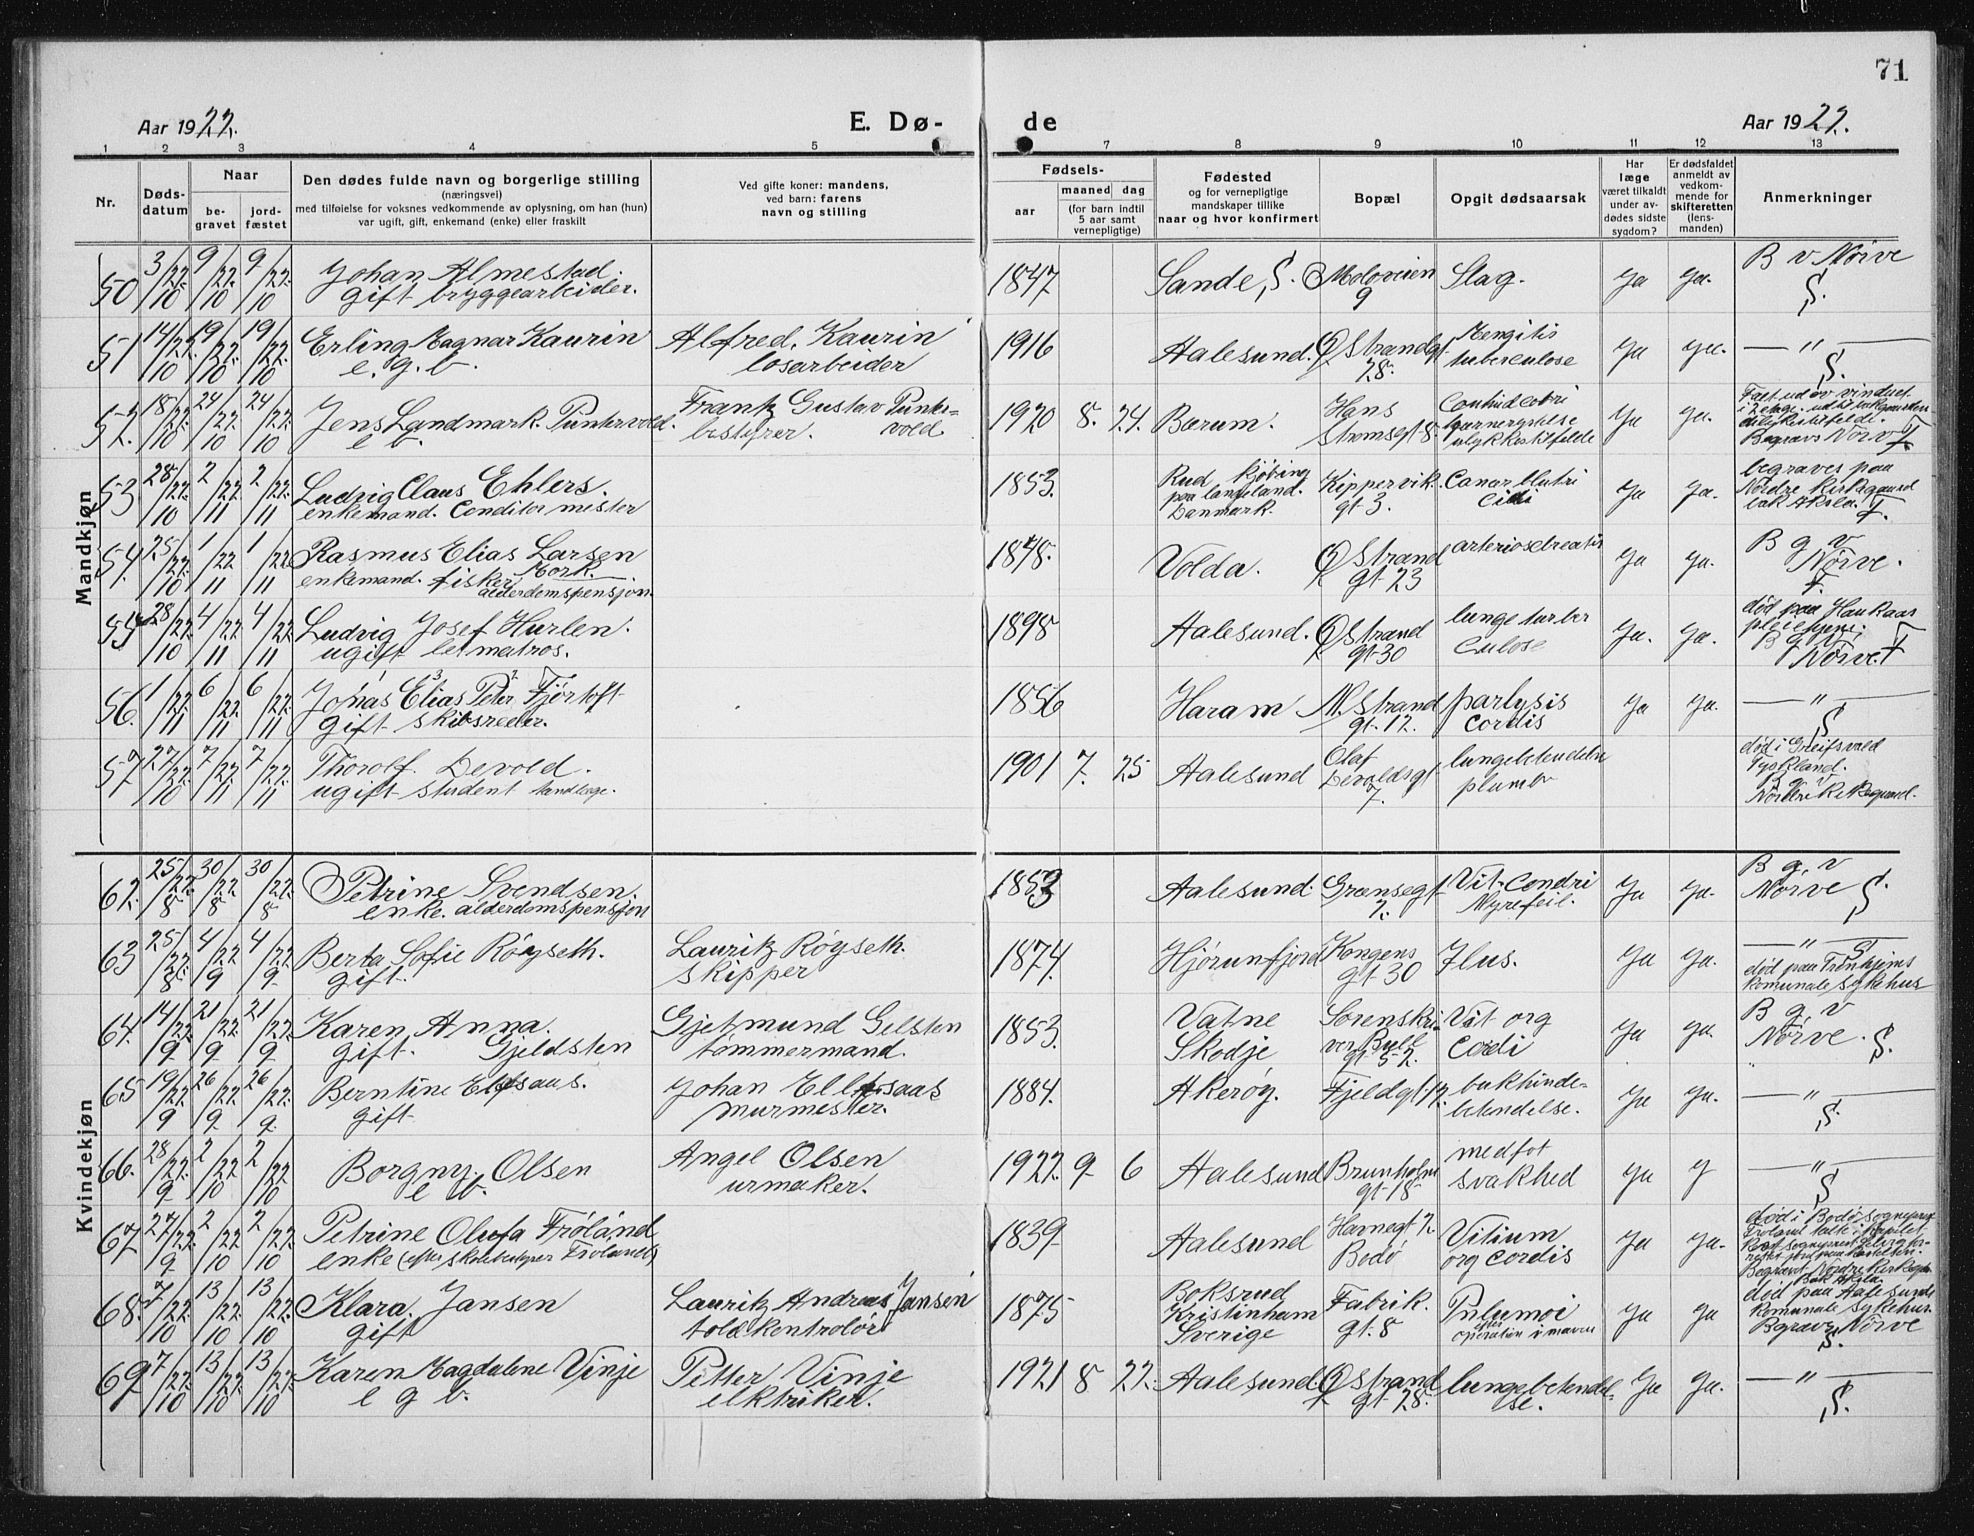 71
Aar 1922.
E. Dø- de
Aar 1922.
1 2 3 4 5 7 8 9 10 11 12 13
Nr.
Døds-
datum
Naar
be-
gravet
jord-
fæstet
Den dødes fulde navn og borgerlige stilling
(næringsvei)
med tilføielse for voksnes vedkommende av oplysning, om han (hun)
var ugift, gift, enkemand (enke) eller fraskilt
Ved gifte koner: mandens,
ved barn: farens
navn og stilling
Fødsels-
aar
maaned dag
(for barn indtil
5 aar samt
vernepligtige)
Fødested
og for vernepligtige
mandskaper tillike
naar og hvor konfirmert
Bopæl
Opgit dødsaarsak
Har
læge
været tilkaldt
under av-
dødes sidste
sygdom?
Er dødsfaldet
anmeldt av
vedkom-
mende for
skifteretten
(lens-
manden)
Anmerkninger
Mandkjøn
50 3/10 22 9/10 22 9/10 22. Johan Almestad. 1847 Sande, S. Moloveien Slag. Ja Ja. B v Nørve
gift bryggearbeider. 9 S.
51 14/10 22 19/10 22 19/10 22. Erling Magnar Kaurin Alfred Kaurin 1916 Aalesund. Ø Strandgt Mengitis Ja Ja. — " —
e. g. b. losarbeider 28. tuberculose S.
52. 18/10 22 24/10 22 24/10 22. Jens Landmark Puntervold. Frantz Gustav Punter- 1920 8. 24. Bærum. Hans Ja Ja.
e b. bestyrer. vold Strømsegt 8. ulykkestilfelde
Begravs Nørve
53 28/10 22 2/11 22 2/11 22. Ludvig Claus Ehlers. 1853. Rud kjøbing Kippervik. Ja Ja. begraves paa
enkemand. Conditor mester paa langeland. gt 3. Nordre kirkegaard
Danmark. bak Aksla.
54. 25/10 22 1/11 22 1/11 22 Rasmus Elias Larsen 1848. Volda. Ø Strand Ja Ja. B g v
enkemand. fisker Mork. gt 23 Nørve.
alderdomspensjon.
55 28/10 22 4/11 22 4/11 22 Ludvig Josef Hurlen. 1898 Aalesund. Ø Strand lunge tuber Ja. Ja. død paa Haukaas
ugift letmatros. gt 30 culose pleiehjem.
B g v
Nørve
56. 1/11 22 6/11 22 6/11 22. Johas Elias Peter Fjørtoft 1856 Haram N. Strand parlysis Ja Ja. — " —
gift skibsreder. gt. 12. cordis S
57 27/10 22. 7/11 22 7/11 22. Thorolf Devold. 1901 7. 25 Aalesund Olaf lungebetendelse død i Greifsvald
ugift student tandlæge. Devoldsgt plumb Tyskland.
7. B g v
Nordre Kirkegaard.
Kvindekjøn
62. 25/8 22. 30/8 22 30/8 22. Petrine Svendsen. 1853 Aalesund. Grænsegt Vit. Condri Ja Ja. B g, v
enke. alderdomspensjon 2. Nyrefeil. Nørve S.
63 25/8 22. 4/9 22 4/9 22 Berta Sofie Røyseth. Lauritz Røyseth. 1874. Hjørunfjord Kongens Flus. Ja Ja. — " —
gift. skipper gt 30 død paa Tronhjems
komunale sykehus
64. 14/9 22 21/9 22 21/9 22. Karen Anna. Gjetmund Gelsten 1853. Vatne Sorenskri- Vit org Ja Ja. B g, v
gift. Gjeldsten tømmermand. Skodje ver Bull Cordi Nørve. S.
gt 52.
65 19/9 22 26/9 22 26/9 22. Berntine Ellefsaus. Johan Ellefsaas 1884. Akerøy. Fjeldgt 17. bukhinde- Ja Ja. — " —
gift murmester. betendelse. S.
66. 28/9 22. 2/10 22 2/10 22 Borgny Olsen Angel Olsen 1922. 9 6 Aalesund Brunholm medfot Ja J — " —
e b. urmaker. gt 18 svakhed S
67 27/9 22. 2/10 22 2/10 22. Petrine Olufa Frøland 1839 Aalesund Havnegt 2. Vitium Ja Ja. død i Bodø
enke (efter skolebestyrer Frølands) Bodø org cordis
Begravet Nordre Kirkegaard
Bak Aksla.
68. 7/10 22 13/10 22 13/10 22. Klara. Jansen Lauritz Andreas Jansen 1875 Boksrud Fabrik. Pnlumoi Ja Ja. død paa Aalesunds
gift toldkontrolør Kristinham gt. 8 efter komunale sykehus.
Sverige operation i maven Bgravs Nørve
S.
69 7/10 22. 13/10 22 13/10 22. Karen Magdalene Vinje Petter Vinje 1921 8 22. Aalesund. Ø Strand lungebetendel- Ja Ja. — " —
e g b. elktriker. gt 28. se. S.